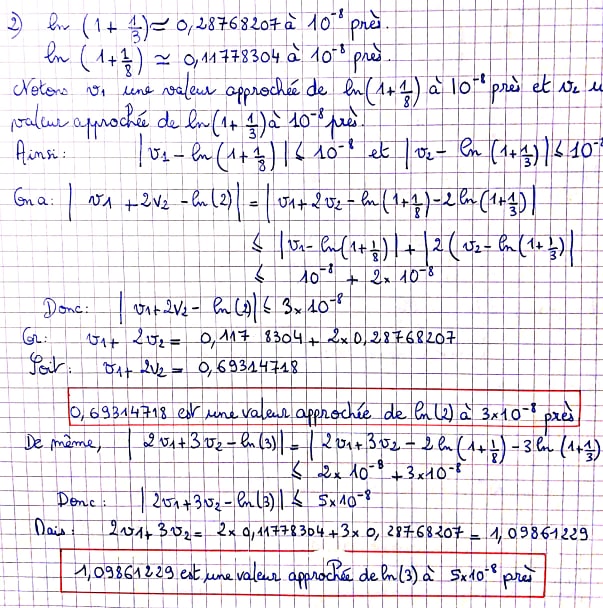 2) ln (1 + 1/3) ≃ 0,28768207 à 10⁻⁸ près.
ln (1 + 1/8) ≃ 0,11778304 à 10⁻⁸ près.
Notons v₁ une valeur approchée de ln(1+1/8) à 10⁻⁸ près et v₂ u
valeur approchée de ln(1+1/3) à 10⁻⁸ près.
Ainsi : |v₁ - ln(1+1/8)| ≤ 10⁻⁸ et |v₂ - ln(1+1/3)| ≤ 10⁻⁸
On a : |v₁ + 2v₂ - ln(2)| = |v₁ + 2v₂ - ln(1+1/8) - 2ln(1+1/3)|
≤ |v₁ - ln(1+1/8)| + |2(v₂ - ln(1+1/3)|
≤ 10⁻⁸ + 2×10⁻⁸
Donc : |v₁+2v₂ - ln(2)| ≤ 3×10⁻⁸
Or : v₁ + 2v₂ = 0,117 8304 + 2×0,28768207
Soit : v₁ + 2v₂ = 0,69314718
0,69314718 est une valeur approchée de ln(2) à 3×10⁻⁸ près
De même, |2v₁+3v₂ - ln(3)| = |2v₁+3v₂ - 2ln(1+1/8) - 3ln(1+1/3)
≤ 2×10⁻⁸ + 3×10⁻⁸
Donc : |2v₁+3v₂ - ln(3)| ≤ 5×10⁻⁸
Mais : 2v₁+3v₂ = 2×0,11778304 + 3×0,28768207 = 1,09861229
1,09861229 est une valeur approchée de ln(3) à 5×10⁻⁸ près